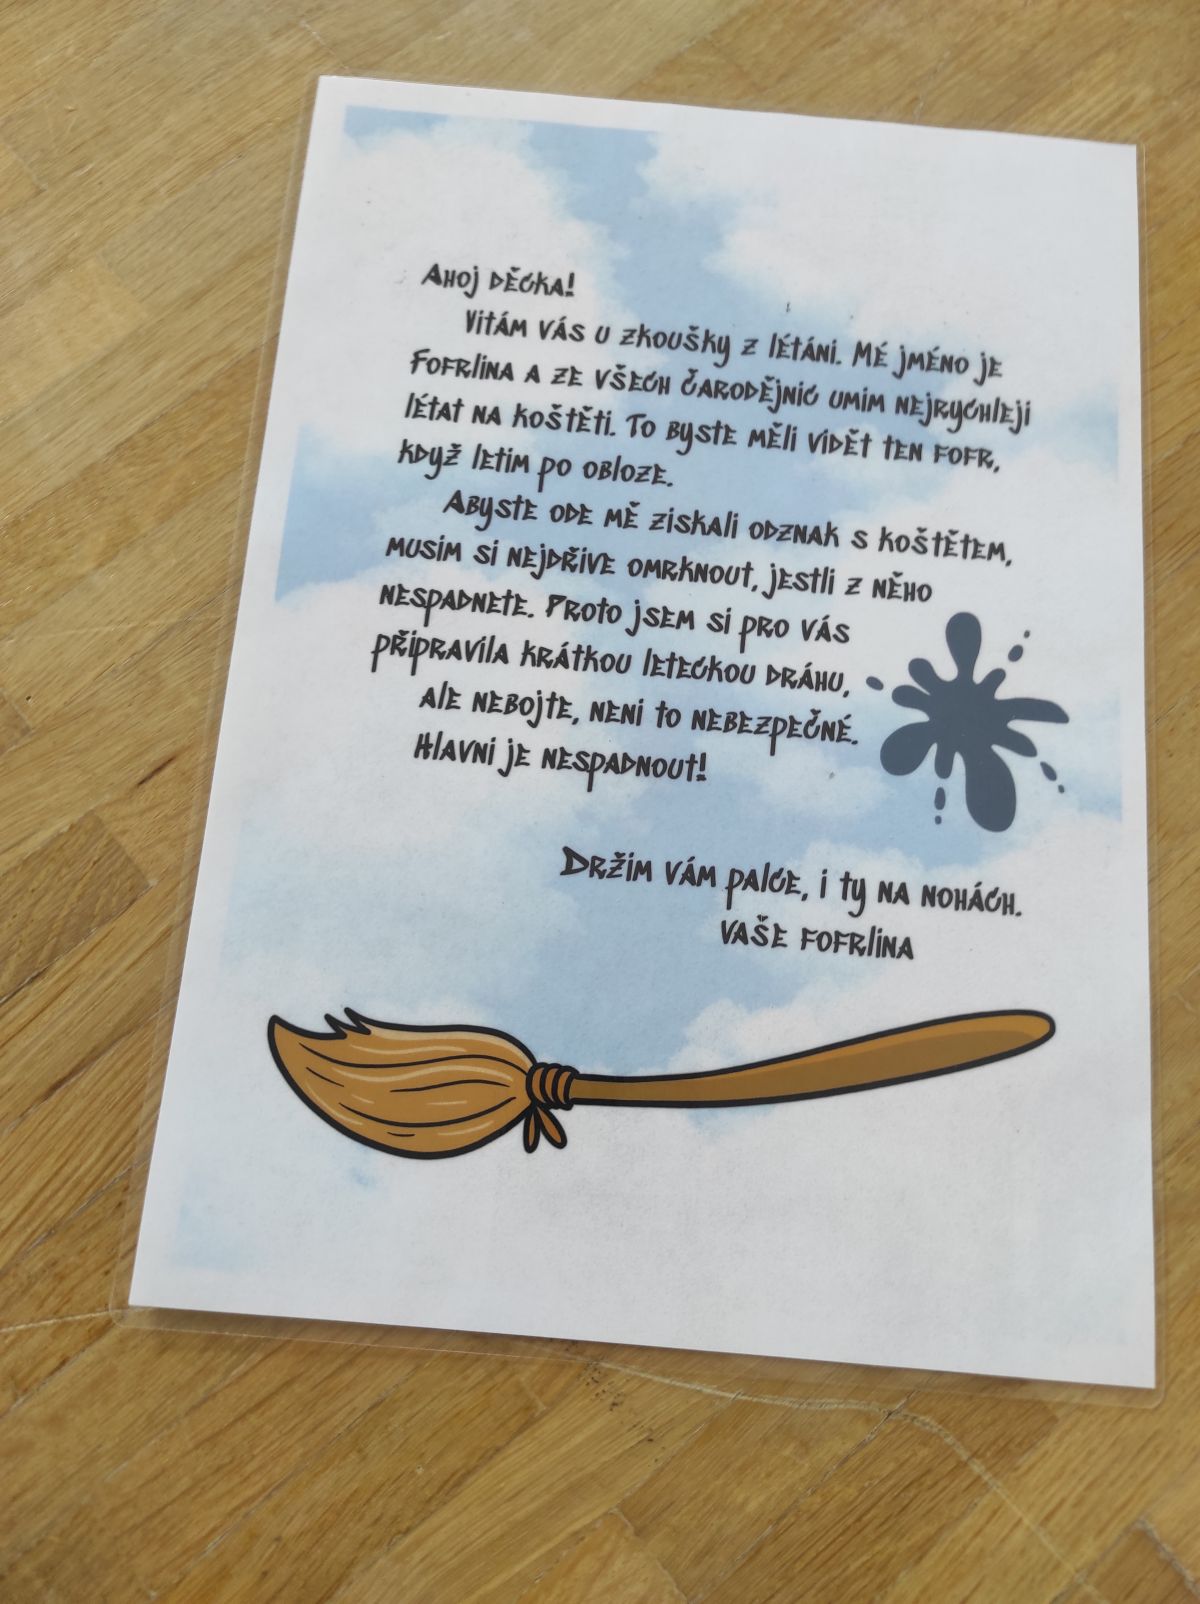 Ahoj děcka!
Vítám vás u zkoušky z létání. Mé jméno je
Fofrlína a ze všech čarodějnic umím nejrychleji
létat na koštěti. To byste měli vidět ten fofr,
když letím po obloze.
Abyste ode mě získali odznak s koštětem,
musím si nejdříve omrknout, jestli z něho
nespadnete. Proto jsem si pro vás
připravila krátkou leteckou dráhu,
ale nebojte, není to nebezpečné.
Hlavní je nespadnout!
Držím vám palce, i ty na nohách.
Vaše Fofrlína